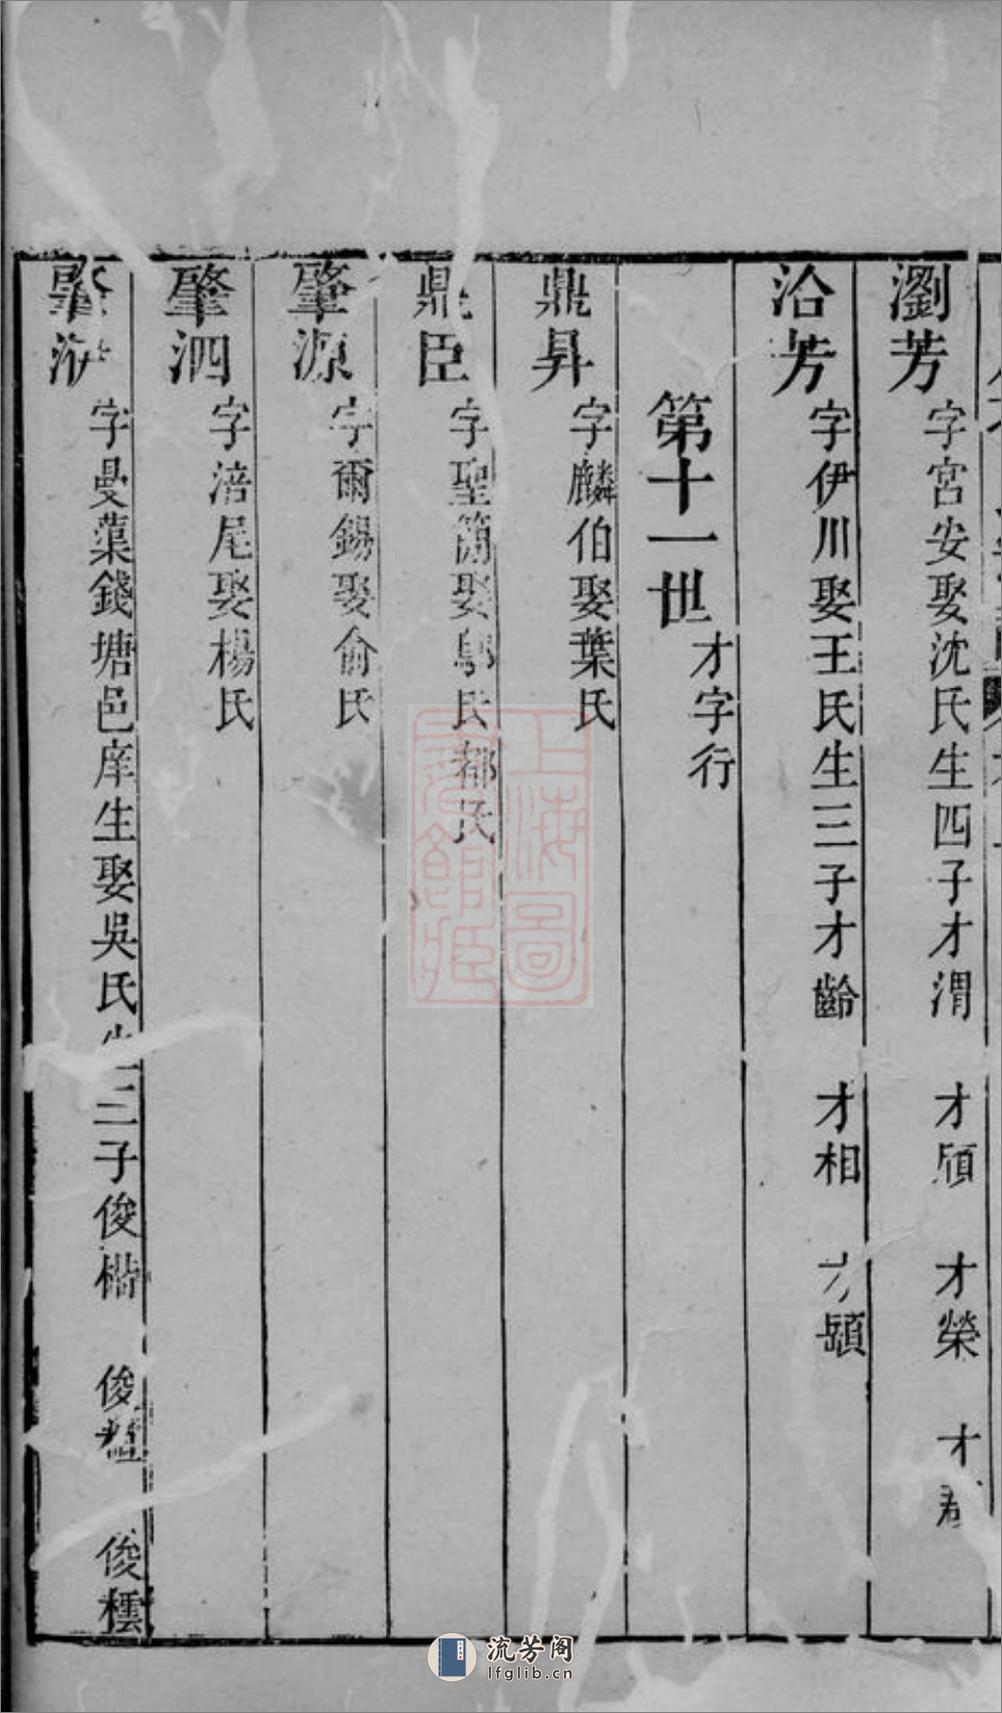 瀏芳 字宮安娶沈氏生四子才渭 才頎 才榮 才
洽芳 字伊川娶王氏生三子才齡 才相 才顗
第十一世 才字行
鼎昇 字麟伯娶葉氏
鼎臣 字聖簡娶鄔氏都氏
肇源 字爾錫娶俞氏
肇泗 字涪尾娶楊氏
肇洢 字曼蕖錢塘邑庠生娶吳氏生三子俊楷 俊 俊
上海圖書館藏
流芳阁
lfglib.cn